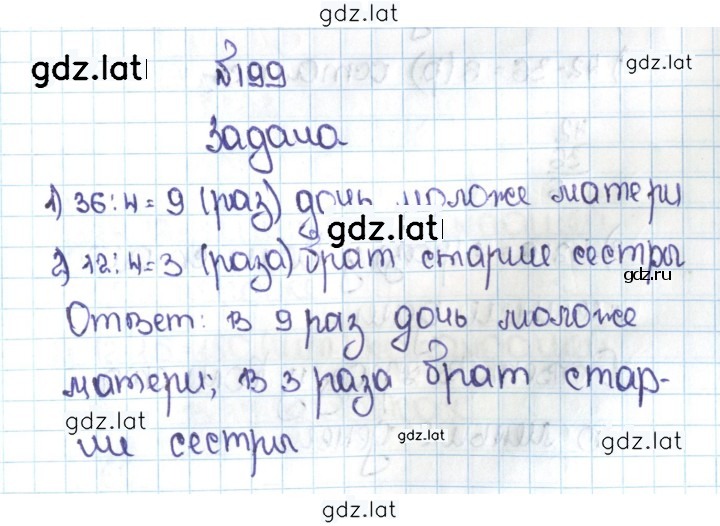 gdz.lat
gdz.lat gdz.lat
№199
Задача
1) 36:4=9 (раз) дочь моложе матери
gdz.lat
2) 12:4=3 (раза) брат старше сестры
gdz.ru
Ответ: в 9 раз дочь моложе
матери; в 3 раза брат стар-
gdz.lat gdz.lat gdz.lat
ше сестры
gdz.lat